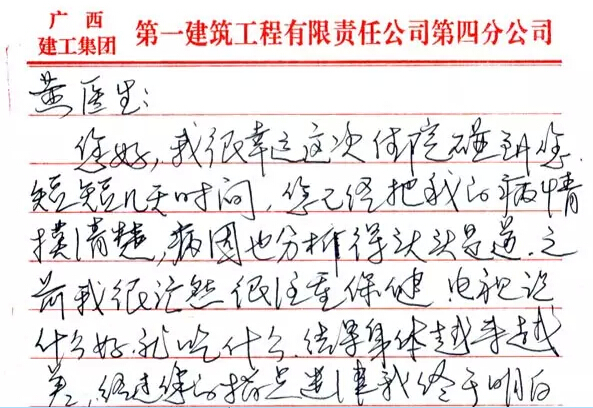 广西
建工集团 第一建筑工程有限责任公司第四分公司
黄医生：
您好，我很幸运这次住院碰到您.
短短几天时间，您已经把我的病情
摸清楚，病因也分析得头头是道.之
前我很茫然很注重保健 电视说
什么好.就吃什么.结果身体越来越
差，经过您的指点迷津我终于明白